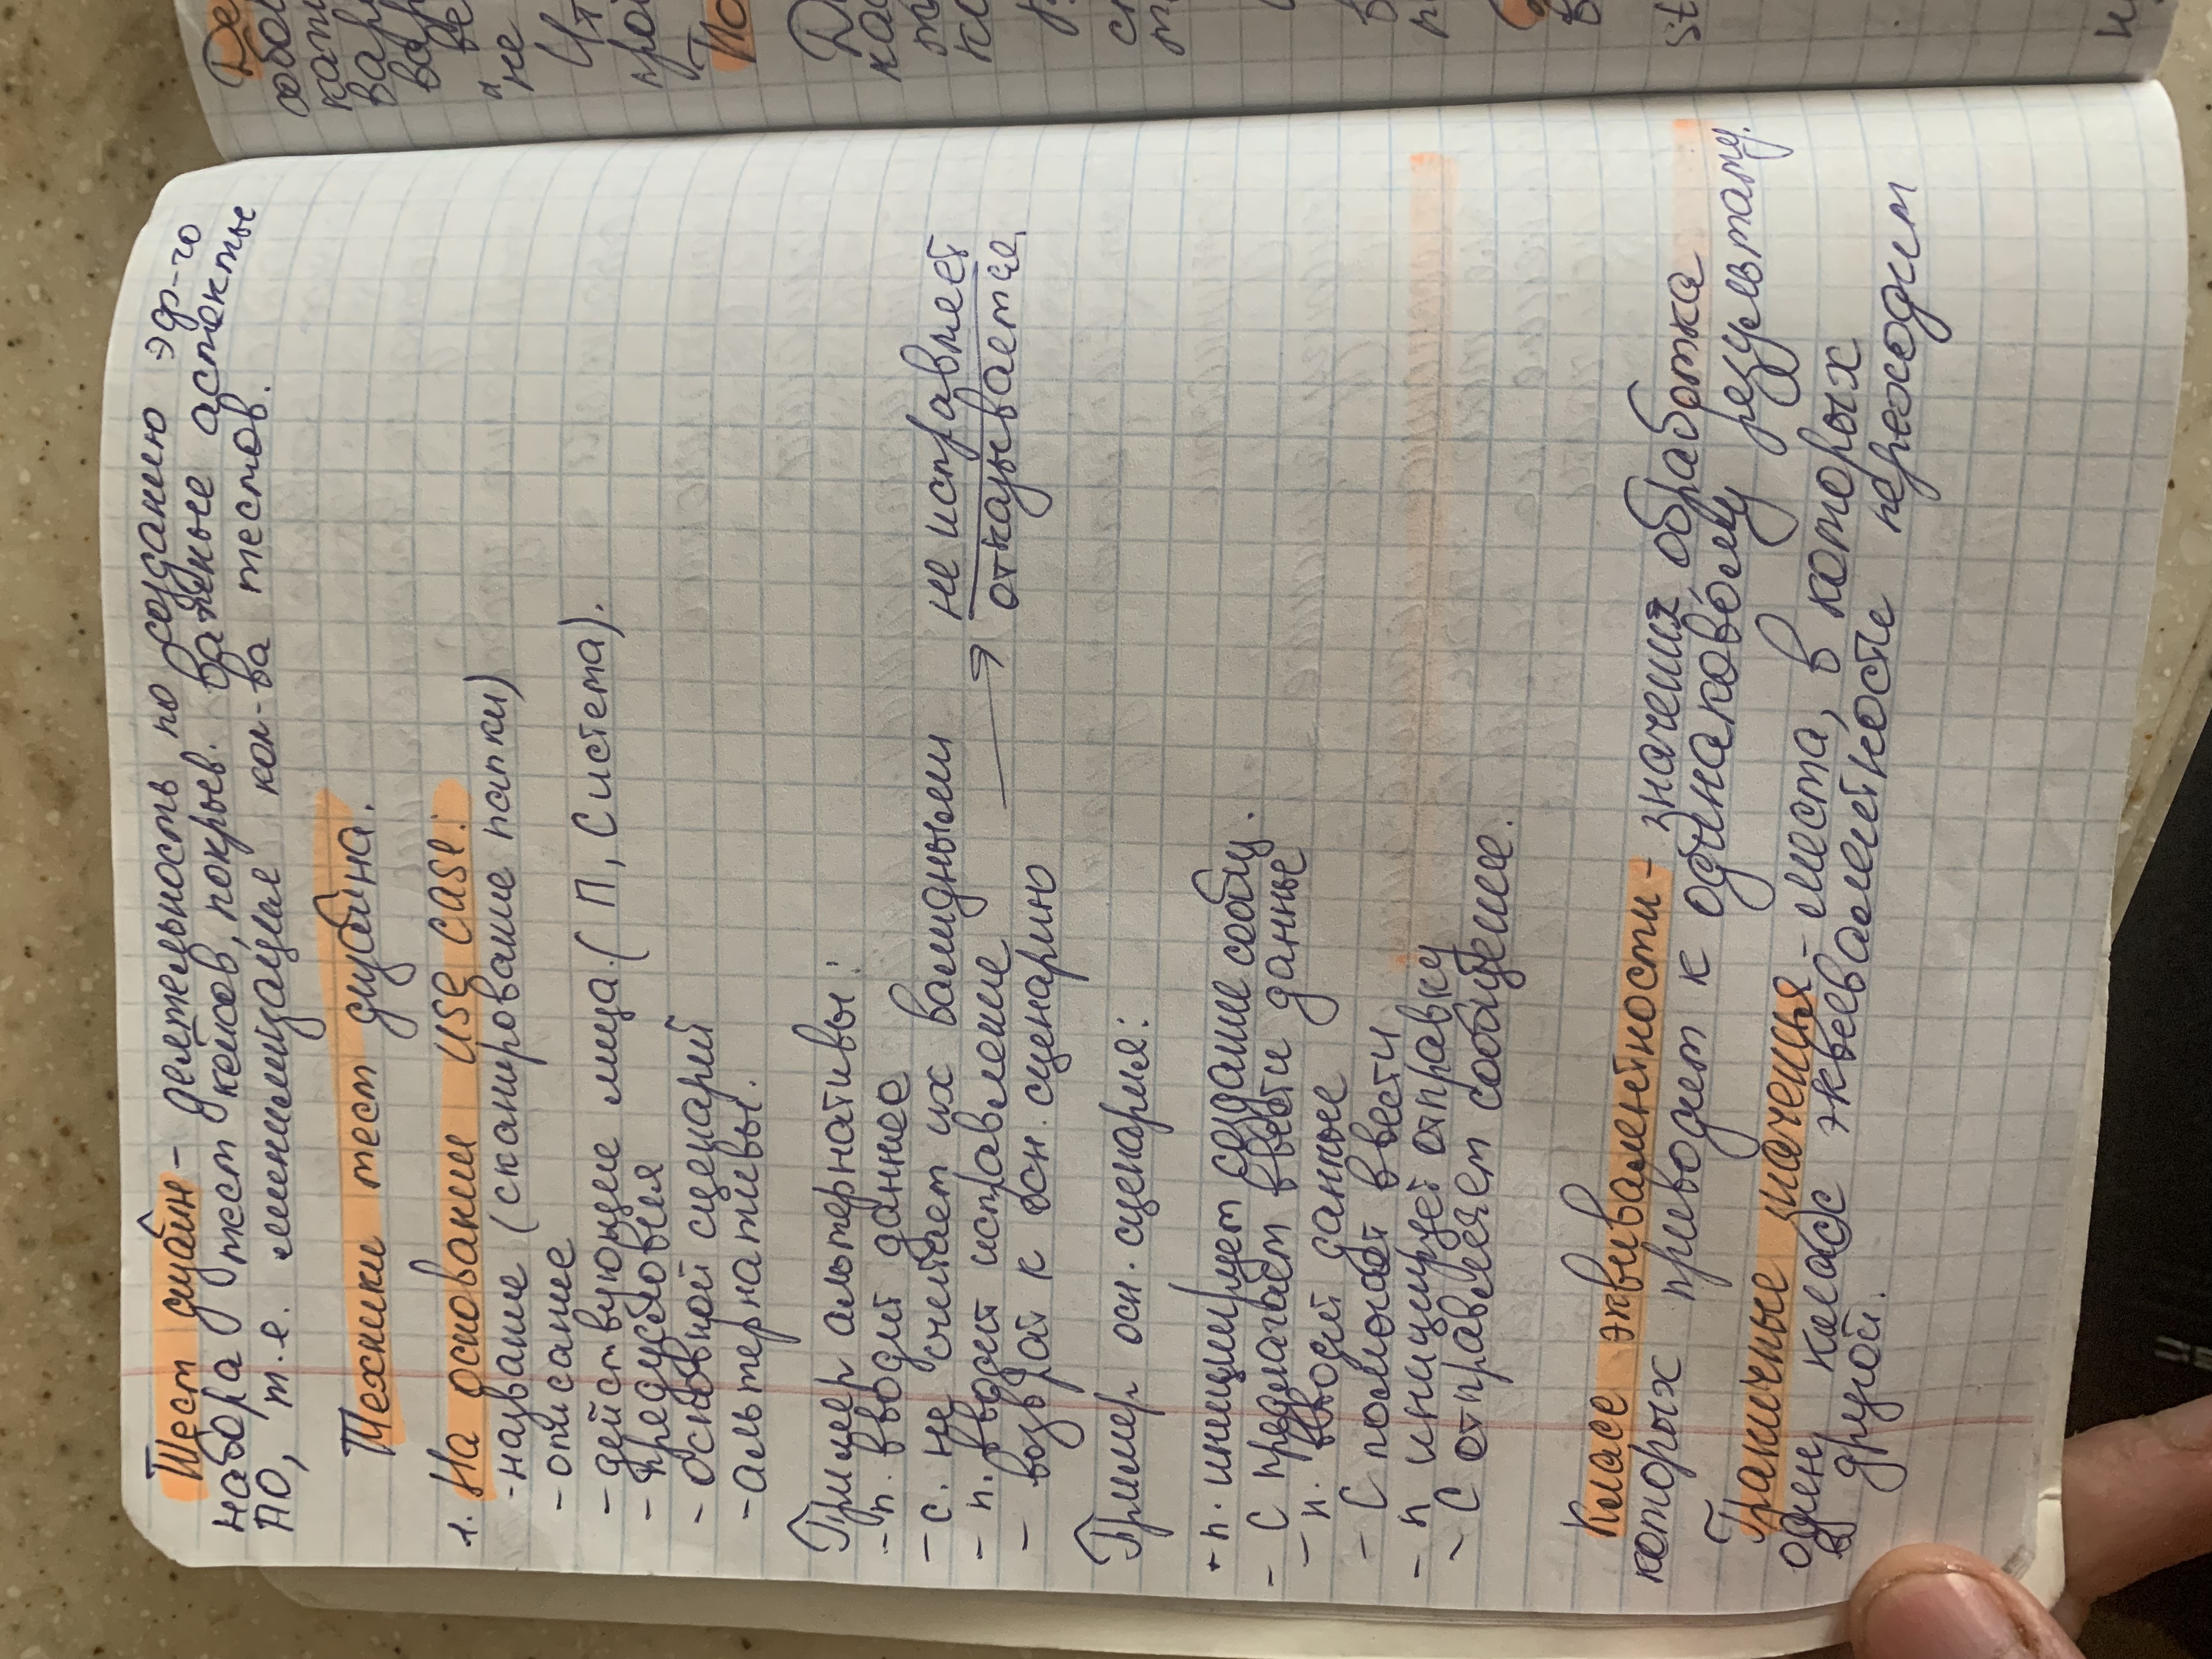 Тест дизайн - деятельность по созданию эф-го
набора тест кейсов, покрыв. важные аспекты
ПО, т.е. минимизация кол-ва тестов.
Техники тест дизайна.
1. На основании use case:
- название (сканирование папки)
- описание
- действующие лица. (П, Система).
- предусловия
- основной сценарий
- альтернативы.
Пример альтернативы:
- п. вводит данные
- с. не считает их валидными
- п. вводит исправление → не исправляет
отказывается.
- возврат к осн. сценарию
Пример осн. сценария:
- п. инициирует создание сообщ.
- С предлагает ввести данные
- п. вводит данные
- С помогает ввести
- п инициирует отправку
- С отправляет сообщение.
Класс эквивалентности - значения, обработка
которых приводит к одинаковому результату.
Граничные значения - места, в которых
один класс эквивалентности переходит
в другой.
Де
собой
вар
вар
не
Чт
По
st